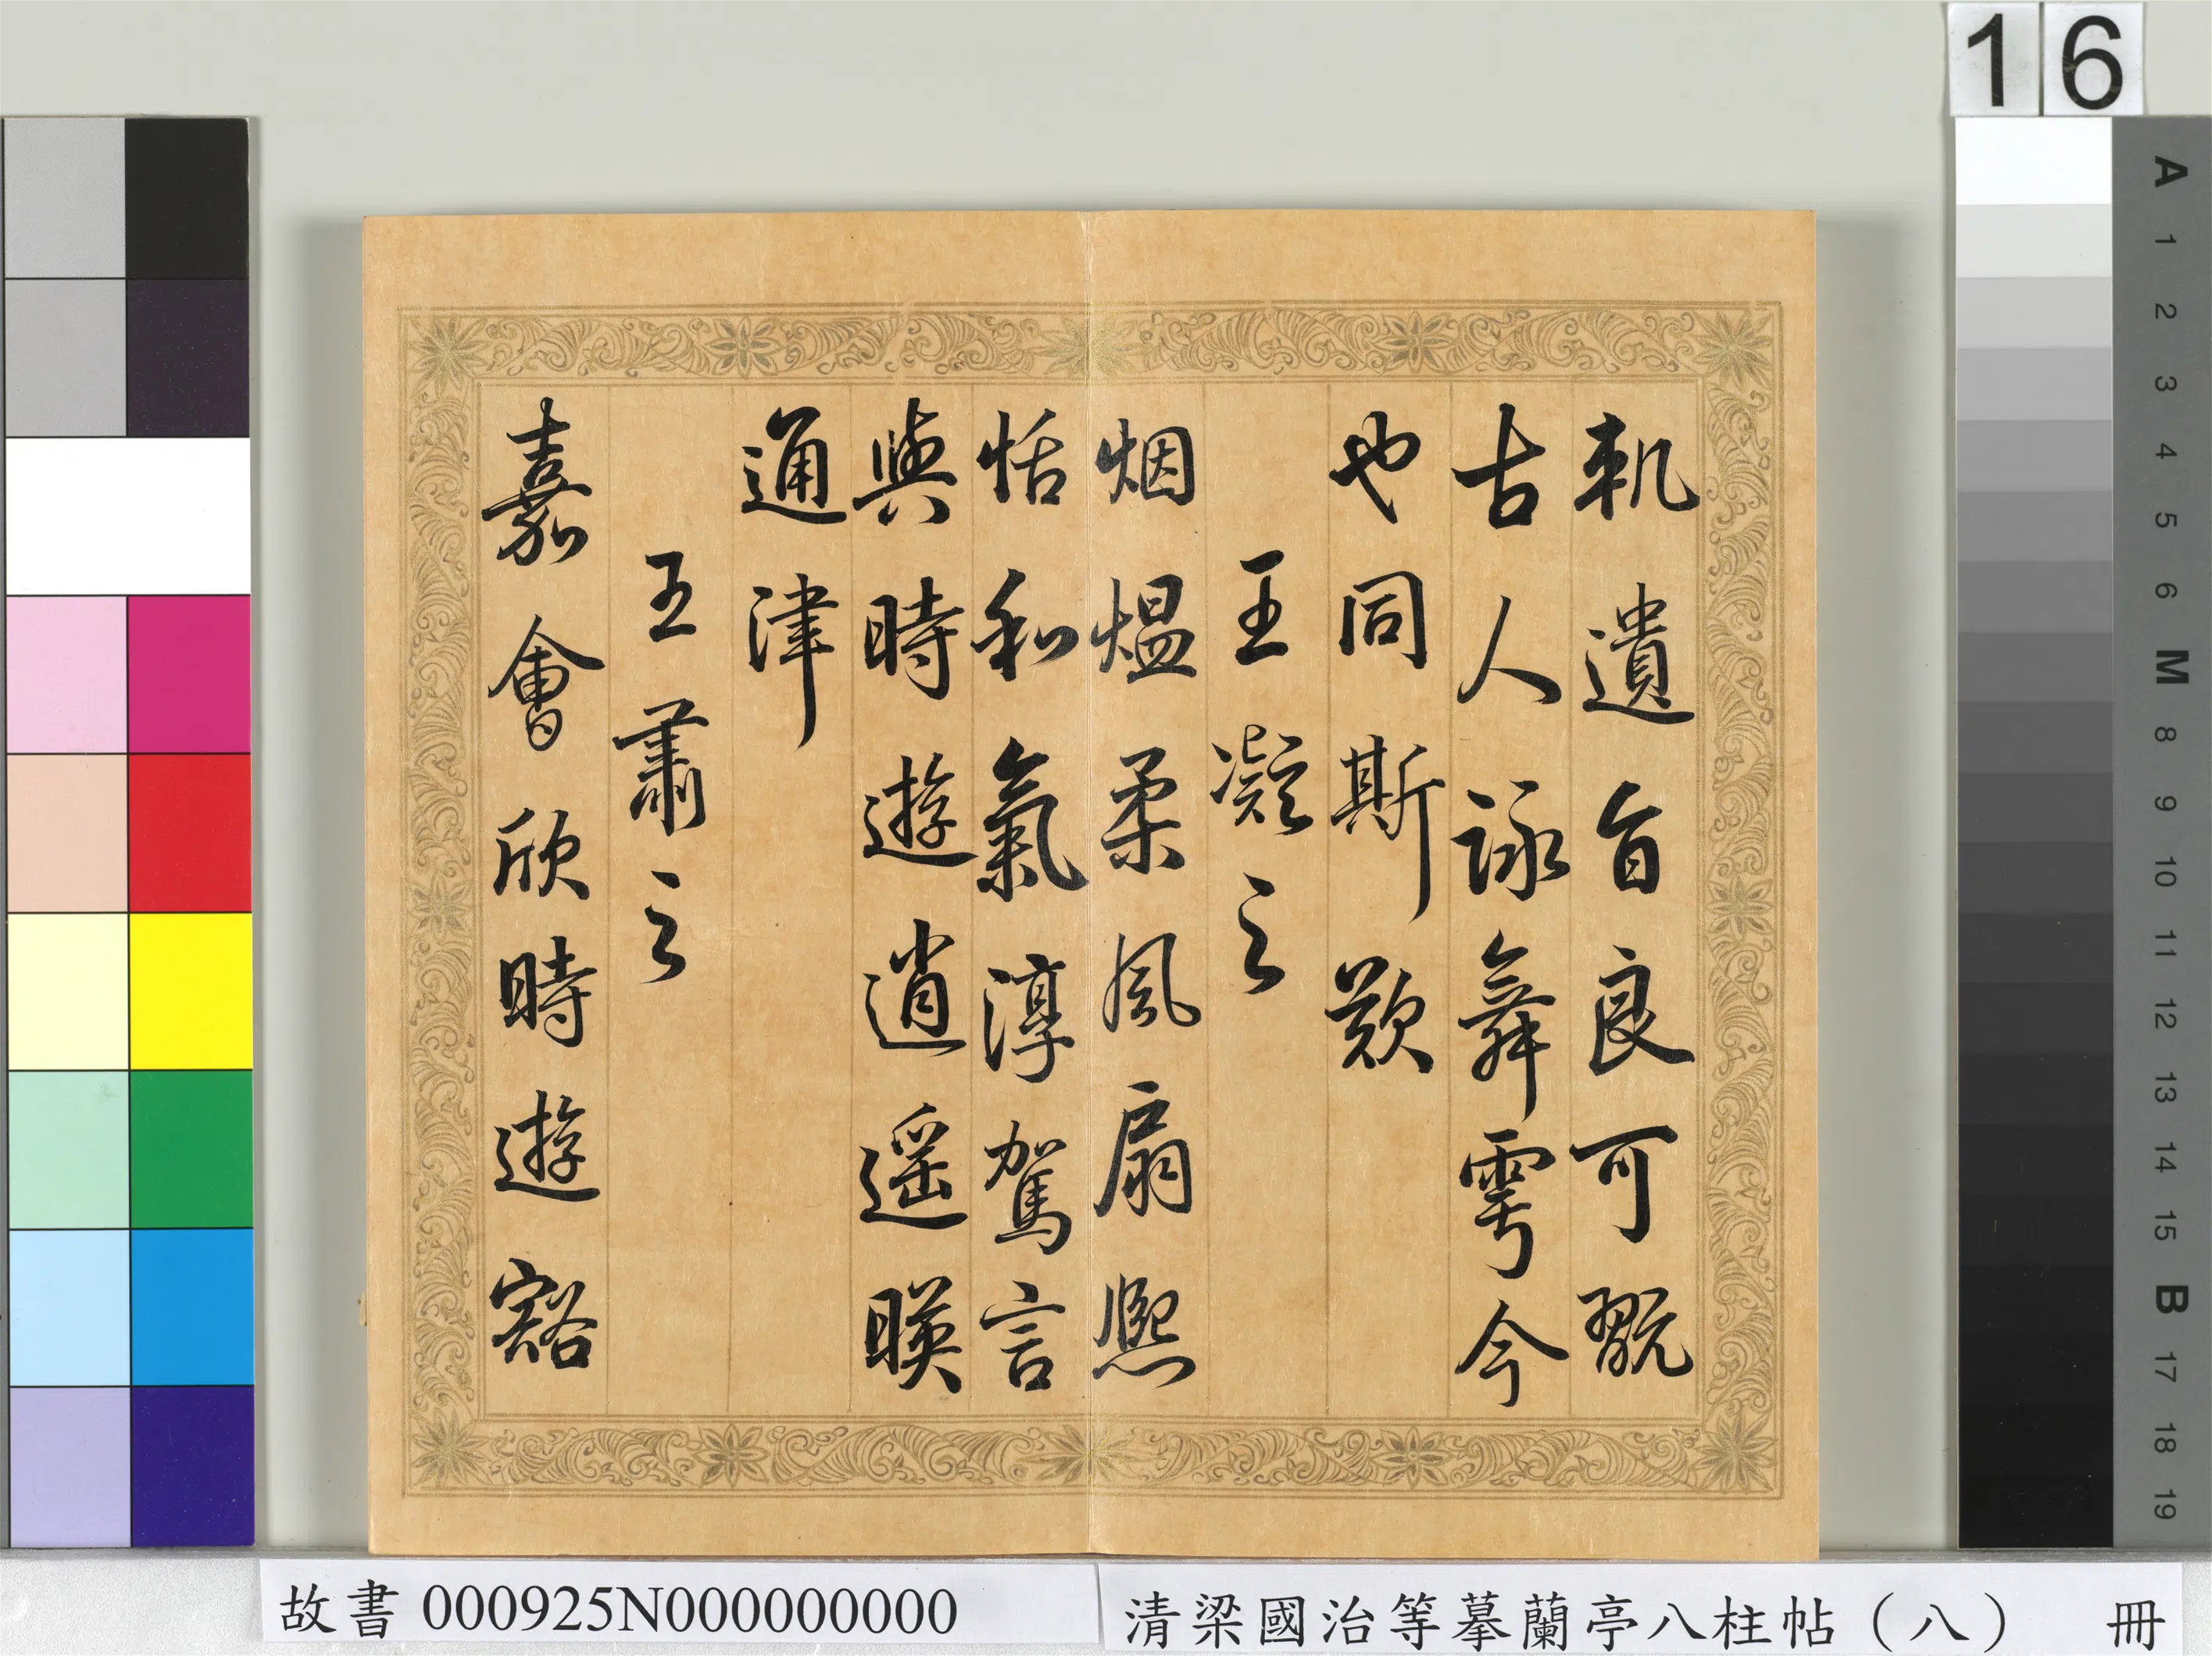 軌遺旨良可翫
古人詠舞雩今
也同斯歎
王凝之
烟煴柔風扇熈
恬和氣淳駕言
與時遊逍遥暎
通津
王肅之
嘉會欣時遊豁
16
A 1 2 3 4 5 6 M 8 9 10 11 12 13 14 15 B 17 18 19
故書 000925N000000000
清梁國治等摹蘭亭八柱帖（八） 冊